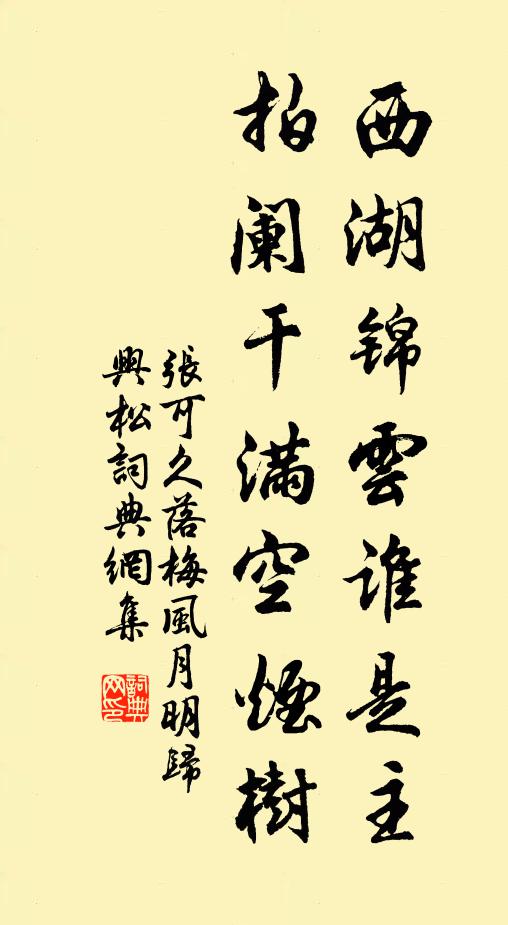 西湖锦雲谁是主
拍阑干满空煙樹
張可久落梅風月明歸
興松詞典網集
詞典网印